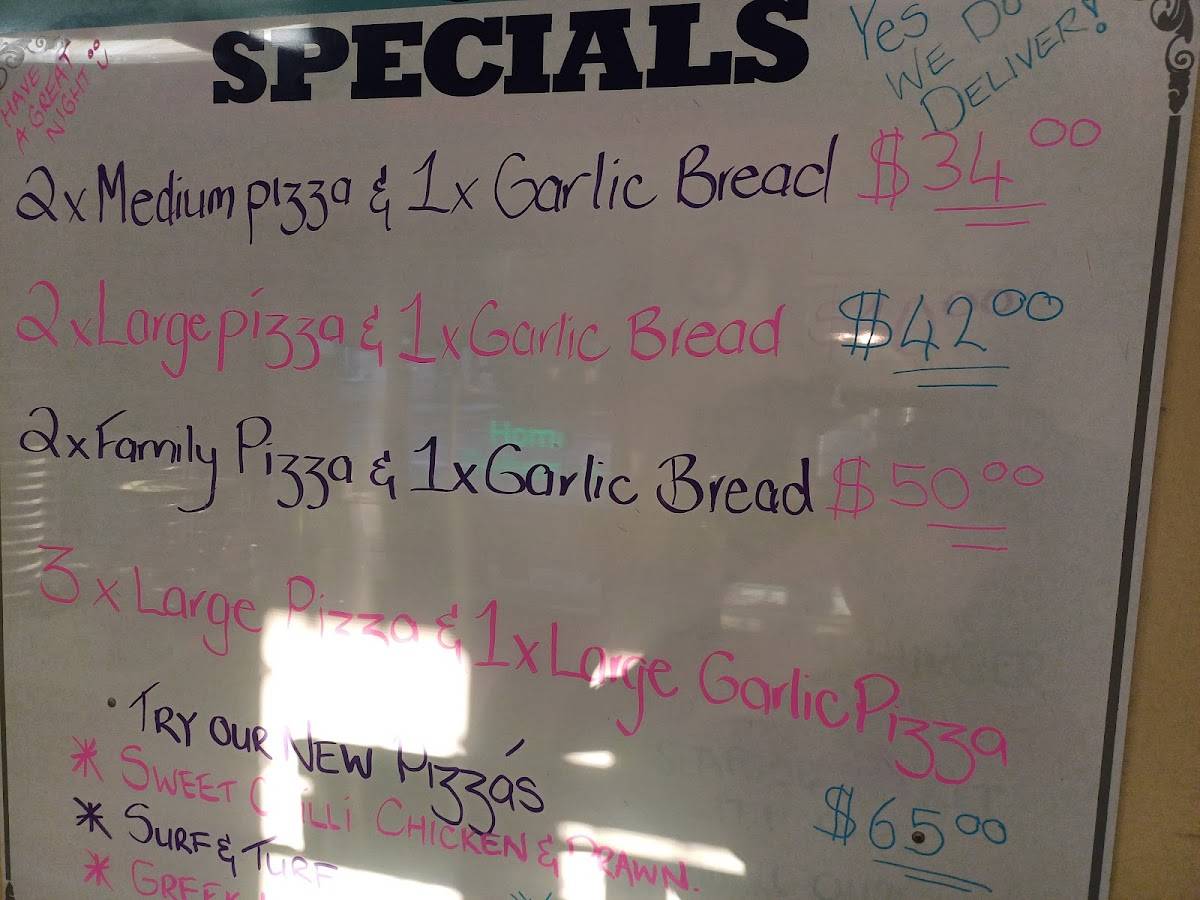 SPECIALS
HAVE
A GREAT
NIGHT
Yes
WE DO
DELIVER!
2x Medium pizza & 1x Garlic Bread $34 00
2x Large pizza & 1x Garlic Bread $42 00
2x Family Pizza & 1x Garlic Bread $50 00
3x Large Pizza & 1x Large Garlic Pizza
$65 00
• TRY OUR NEW PIZZA'S
* SWEET CHILLI CHICKEN & PRAWN.
* SURF & TURF
* GREEK